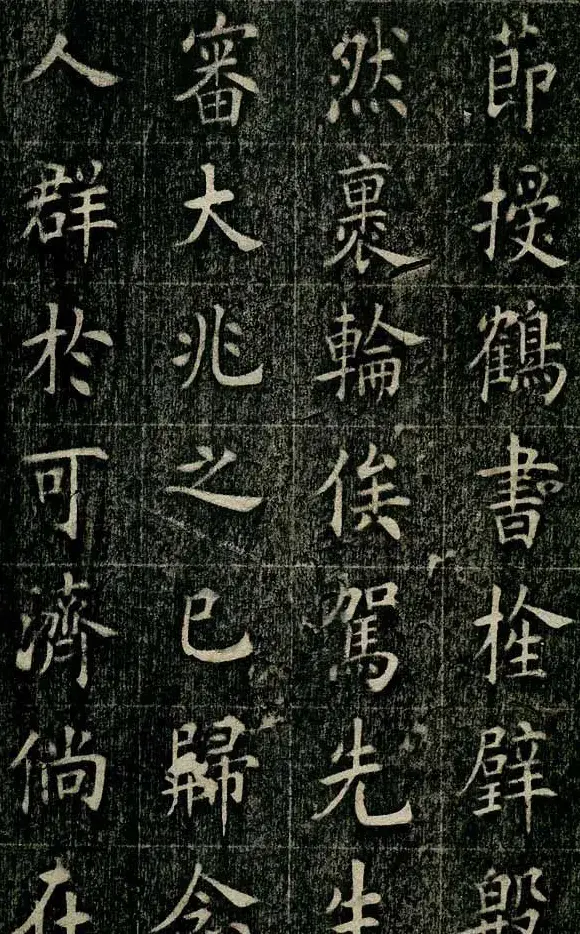 節授鶴書栓璧
然裹輪俟駕先生
審大兆之已歸念
人群於可濟倘在